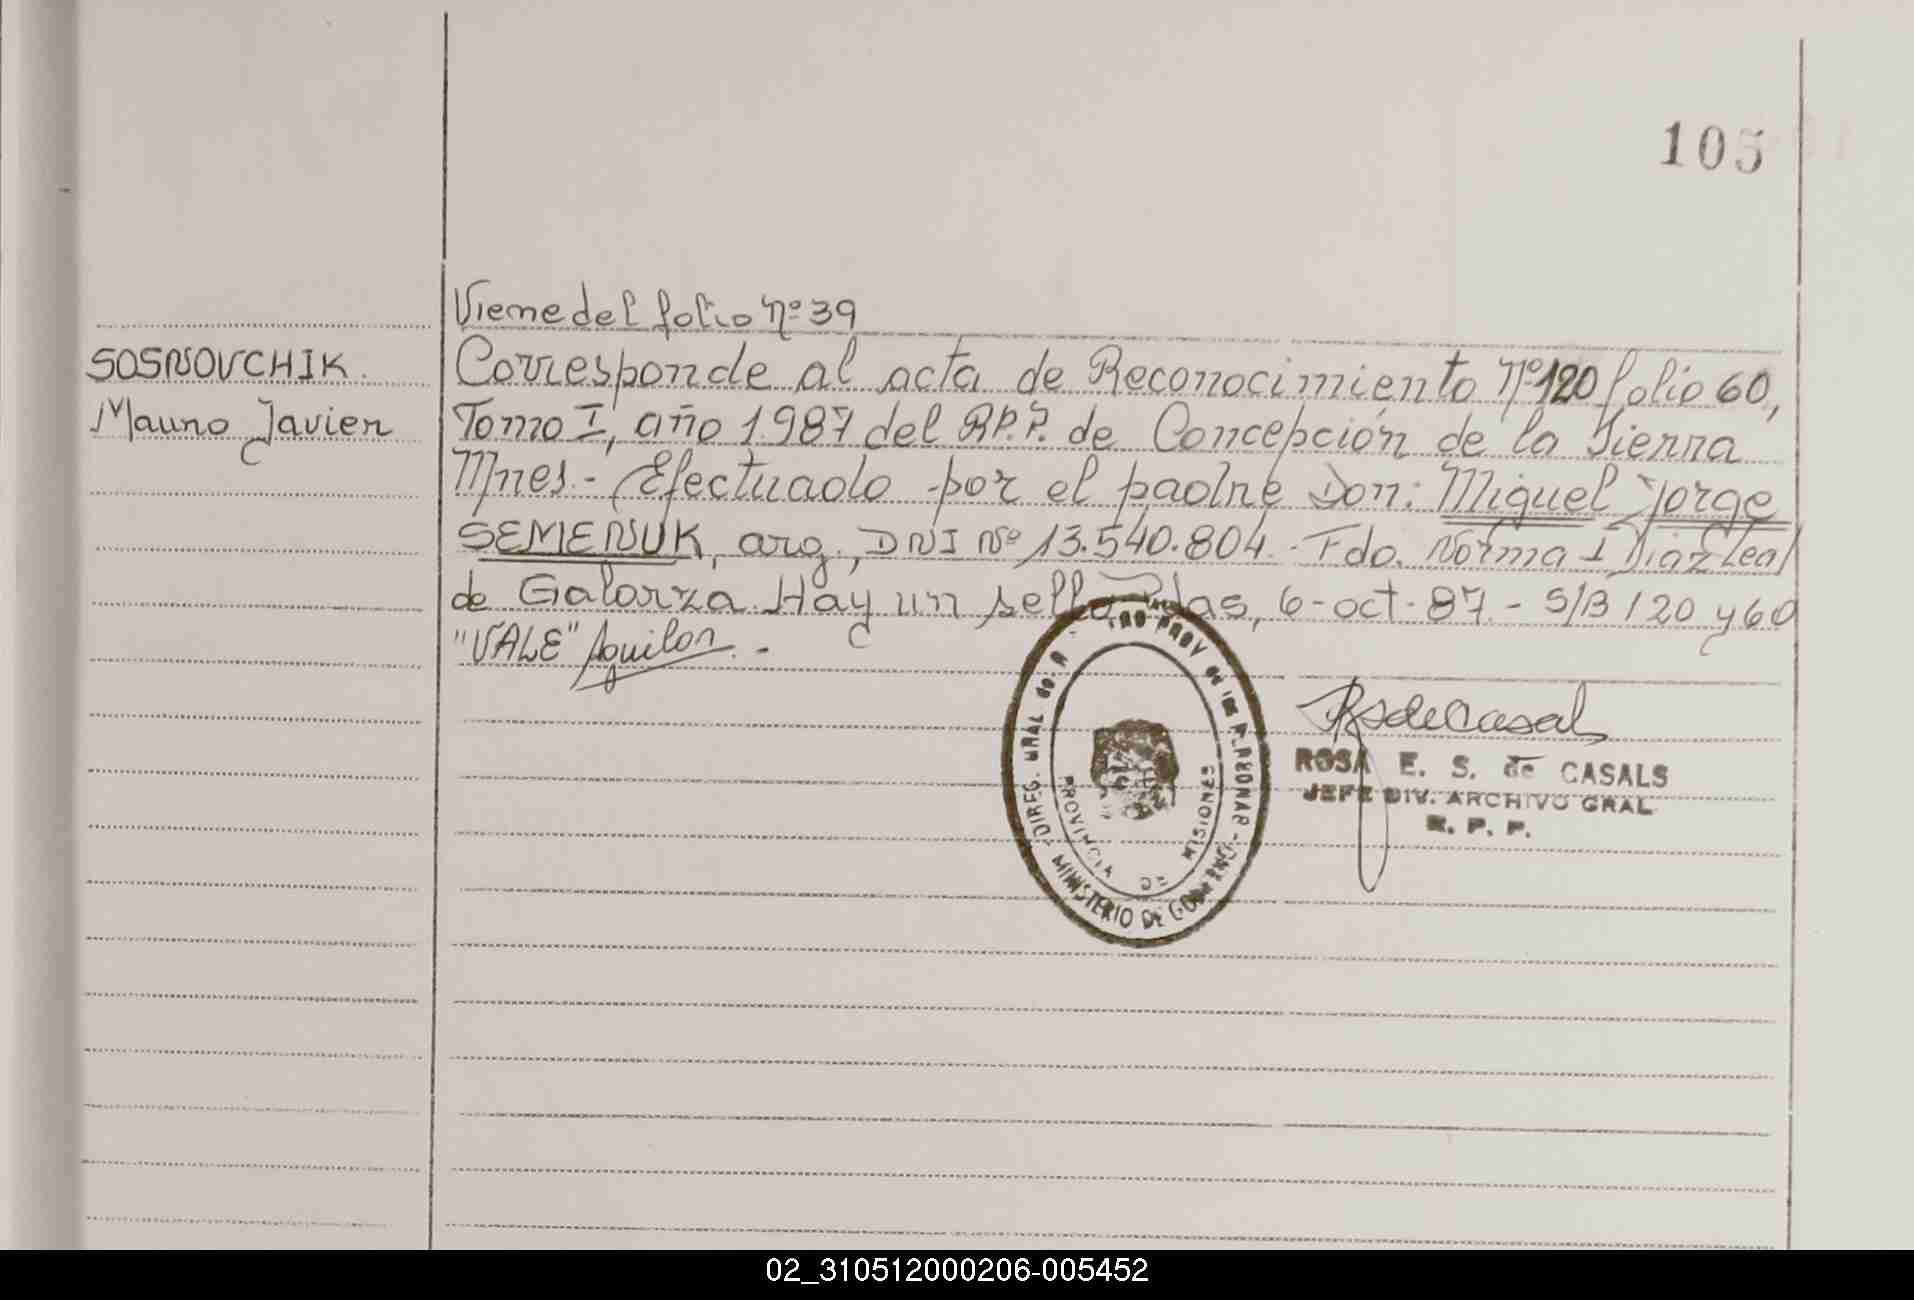 105
Viene del folio nº 39
SOSNOVCHIK.
Mauro Javier
Corresponde al acta de Reconocimiento Nº 120 folio 60,
Tomo I, año 1987 del R.P.P. de Concepción de la Sierra
Mnes.- Efectuado por el padre Don: Miguel Jorge
SEMENUK, arg., DNI Nº 13.540.804.- Fdo. Norma I Diaz Leal
de Galarza. Hay un sello. Pdas, 6-oct-87.- S/B 120 y 60
"VALE" Aguilar.-
RS de Casals
ROSA E. S. de CASALS
JEFE DIV. ARCHIVO GRAL
R. P. P.
DIREG. GRAL de PROV de las PERSONAS -
MINISTERIO DE GOBIERNO
PROVINCIA DE MISIONES
02_310512000206-005452